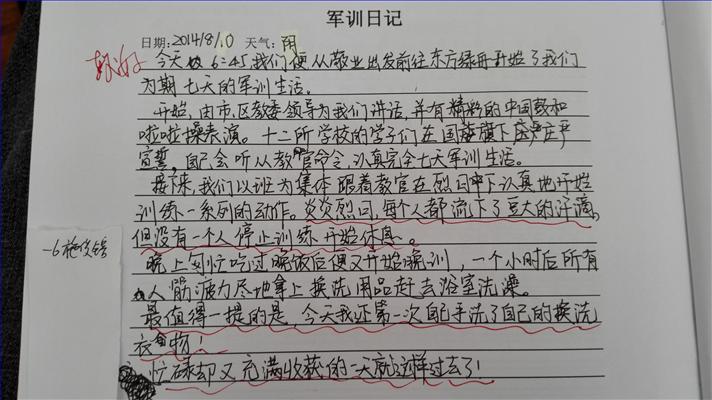 军训日记
日期:2014/8/10 天气:阴
今天 6:45,我们便从敬业出发前往东方绿舟开始了我们
为期七天的军训生活。
开始,由市、区教委领导为我们讲话,并有精彩的中国鼓和
啦啦操表演。十二所学校的学子们在国旗旗下庄严
宣誓,自己会听从教官命令,认真完全七天军训生活。
接下来,我们以班为集体跟着教官在烈日下认真地开始
训练一系列的动作。炎炎烈日,每个人都流下了豆大的汗滴,
但没有一个人停止训练开始休息。
晚上匆忙吃过晚饭后便又开始晚训,一个小时后所有
人筋疲力尽地拿上换洗用品赶去浴室洗澡。
最值得一提的是,今天我还第一次自己手洗了自己的换洗
衣物!
忙碌却又充满收获的一天就这样过去了!